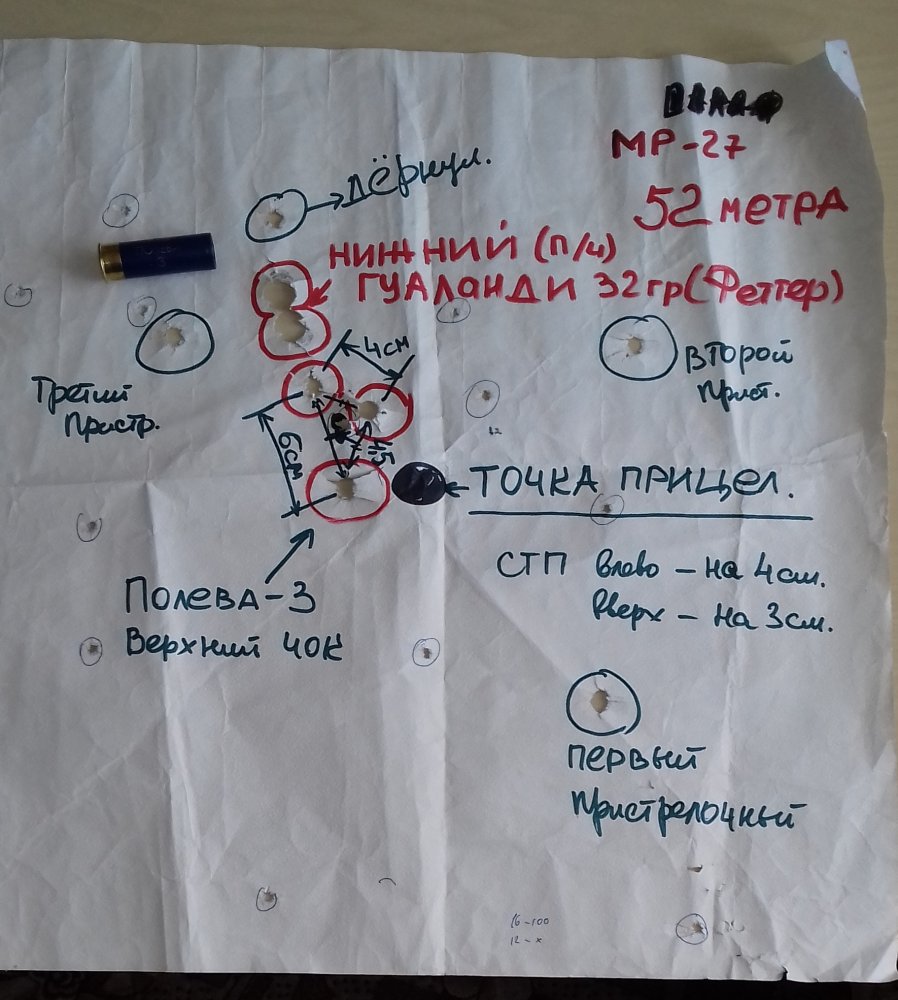 МР-27
52 МЕТРА
дёрнул.
НИЖНИЙ (п/ч)
ГУАЛАНДИ 32гр(Феттер)
4см
ВТОРОЙ
Прист.
Третий
Пристр.
6см
4,5
ТОЧКА ПРИЦЕЛ.
СТП влево – на 4см.
Вверх – на 3см.
Полева-3
Верхний ЧОК
первый
пристрелочный
16-100
12-х